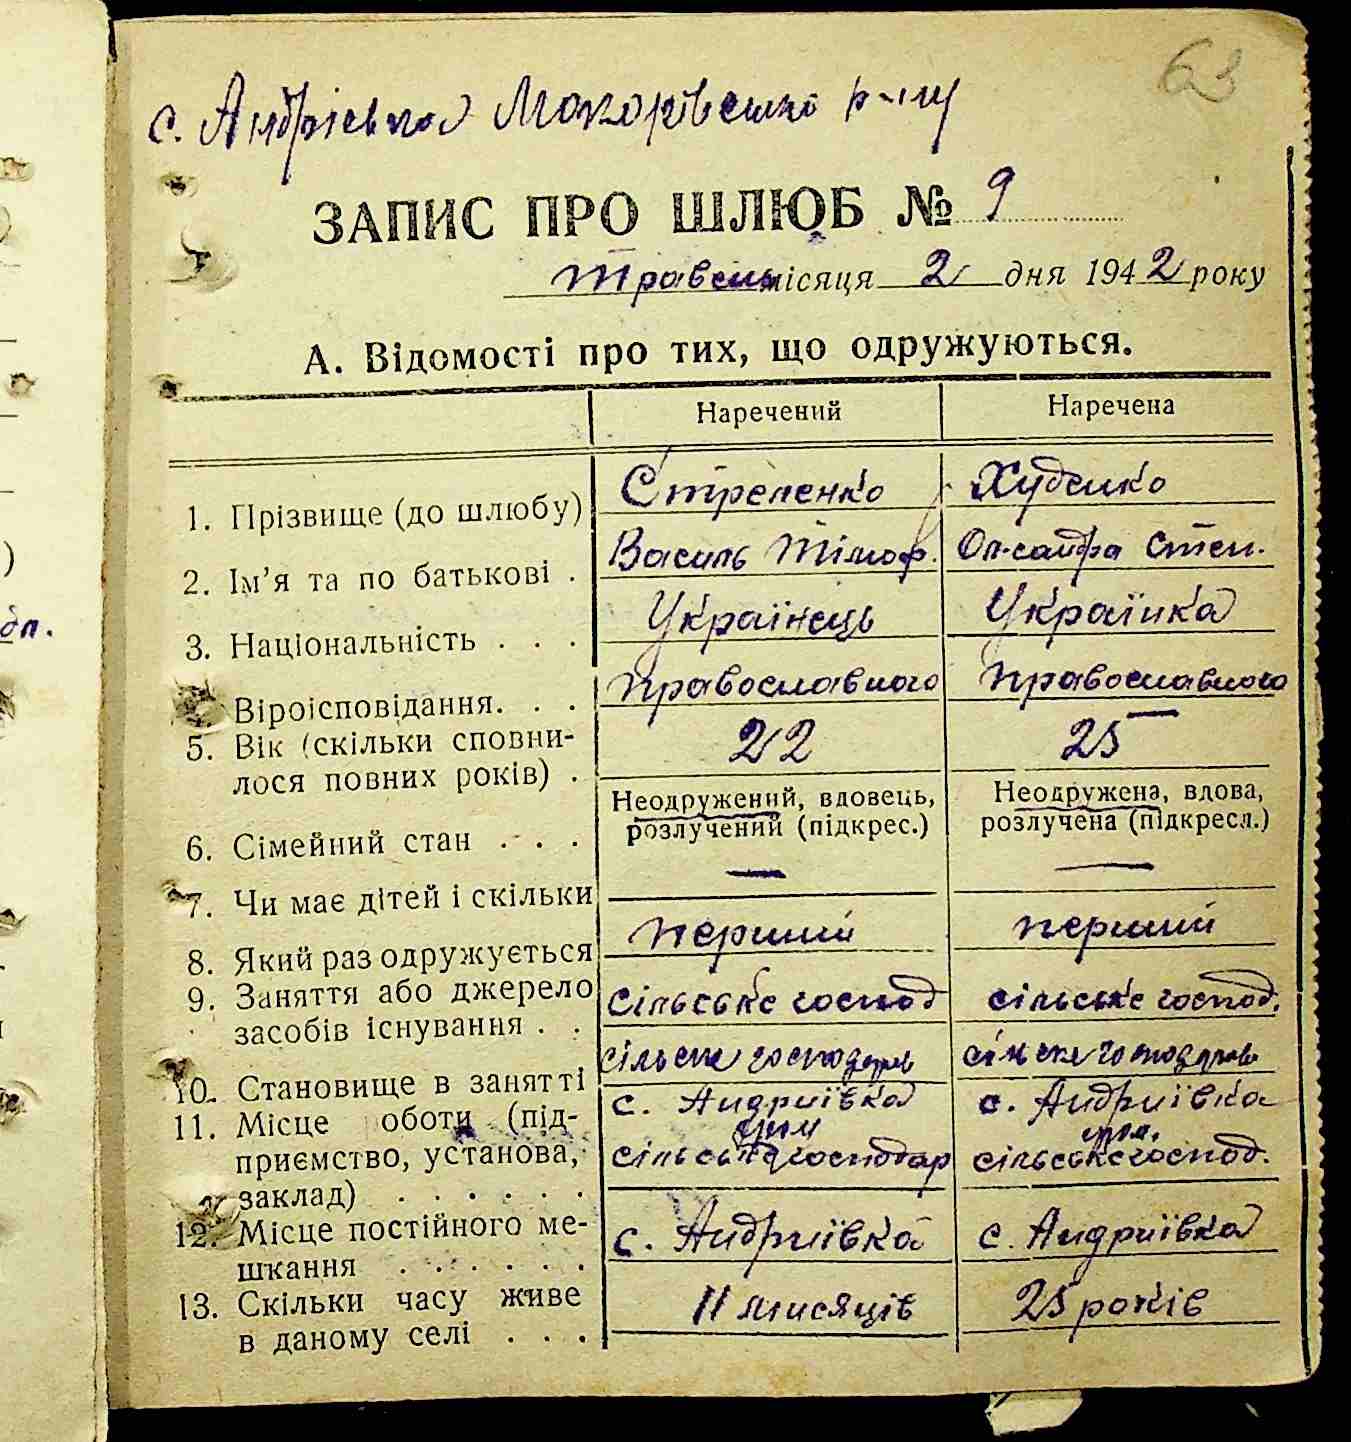 63
с. Андрієвка Макарівського р-ну
ЗАПИС ПРО ШЛЮБ № 9
травень місяця 2 дня 1942 року
А. Відомості про тих, що одружуються.
Наречений Наречена
1. Прізвище (до шлюбу) Стреленко Худенко
2. Ім'я та по батькові . Василь Тімоф. Ол-сандра Степ.
3. Національність . . . Українець Українка
Віроісповідання. . . православного православного
5. Вік (скільки сповни-
лося повних років) . 22 25
Неодружений, вдовець, Неодружена, вдова,
розлучений (підкрес.) розлучена (підкресл.)
6. Сімейний стан . . .
7. Чи має дітей і скільки — —
8. Який раз одружується перший перший
9. Заняття або джерело
засобів існування . . сільське господ сільське господ.
10. Становище в занятті
11. Місце оботи (під- с. Андриївка с. Андриївка
приємство, установа, господар сільське господ.
заклад) . . . . . .
12. Місце постійного ме-
шкання . . . . . . с. Андриївка с. Андриївка
13. Скільки часу живе
в даному селі . . . 11 мисяців 25 років
дп.